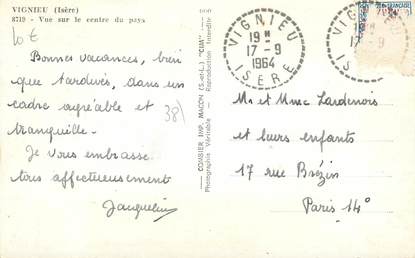 VIGNIEU (Isère)
8719 - Vue sur le centre du pays
10 €
Bonnes vacances, bien
que tardives, dans un
cadre agréable et
tranquille.
38)
Je vous embrasse
tous affectueusement
Jacqueline
COMBIER IMP. MACON (S.-et-L.) "CIM"
Photographie Véritable - Reproduction Interdite
VIGNIEU
19 H
17-9
1964
ISÈRE
VIGNIEU
17-9
ISÈRE
Mr et Mme Lardenois
et leurs enfants
17 rue Brézin
Paris 14°